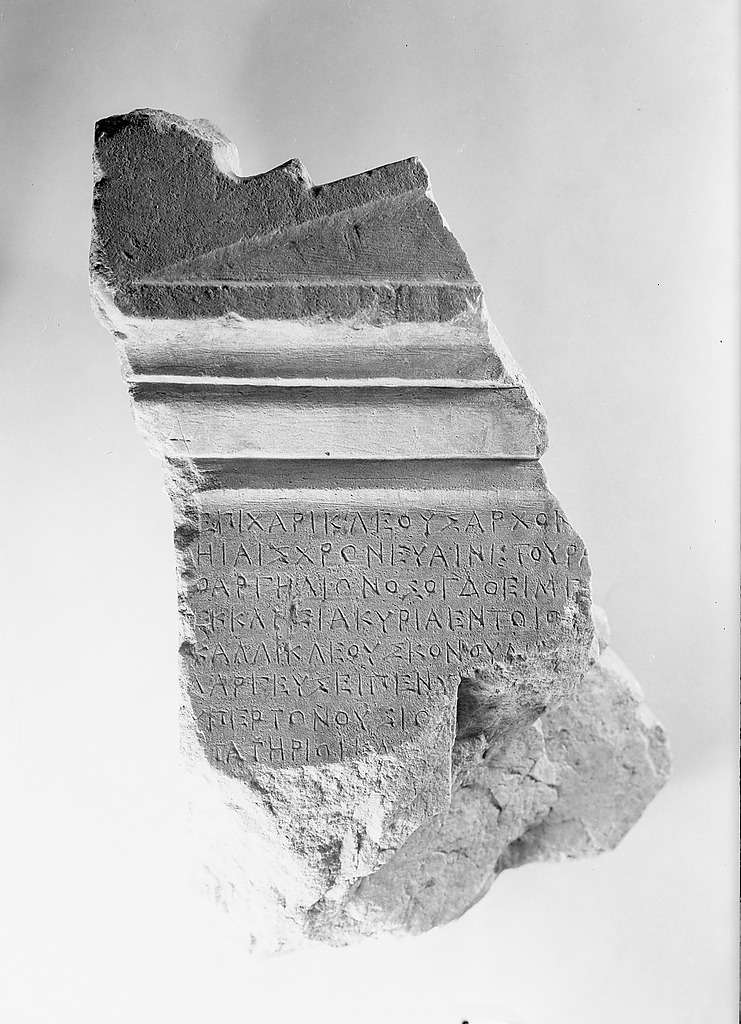 ΕΠΙΧΑΡΙΚΛΕΟΥΣΑΡΧΟΝ
ΗΙΑΙΣΧΡΩΝΕΥΑΙΝΕΤΟΥΡΑ
ΘΑΡΓΗΛΙΩΝΟΣΟΓΔΟΕΙΜΕ
ΕΚΚΛΗΣΙΑΚΥΡΙΑΕΝΤΩΙΘ
ΚΑΛΛΙΚΛΕΟΥΣΚΟΝΘΥΛ
ΛΑΡΓΕΥΣΕΙΠΕΝΥ
ΥΠΕΡΤΩΝΘΥΣΙΩ